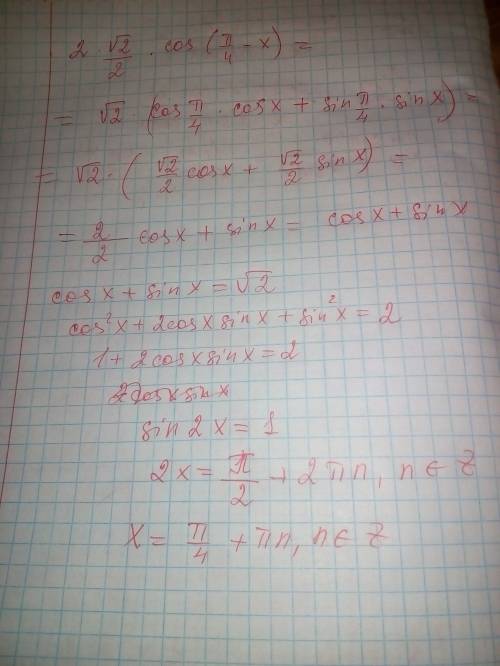 2 · √2/2 · cos (π/4 - x) =
= √2 · (cos π/4 · cosx + sin π/4 · sinx) =
= √2 · ( √2/2 cosx + √2/2 sinx) =
= 2/2 cosx + sinx = cosx + sinx
cosx + sinx = √2
cos²x + 2cosxsinx + sin²x = 2
1 + 2cosxsinx = 2
2cosxsinx
sin2x = 1
2x = π/2 + 2πn, n ∈ Z
X = π/4 + πn, n ∈ Z